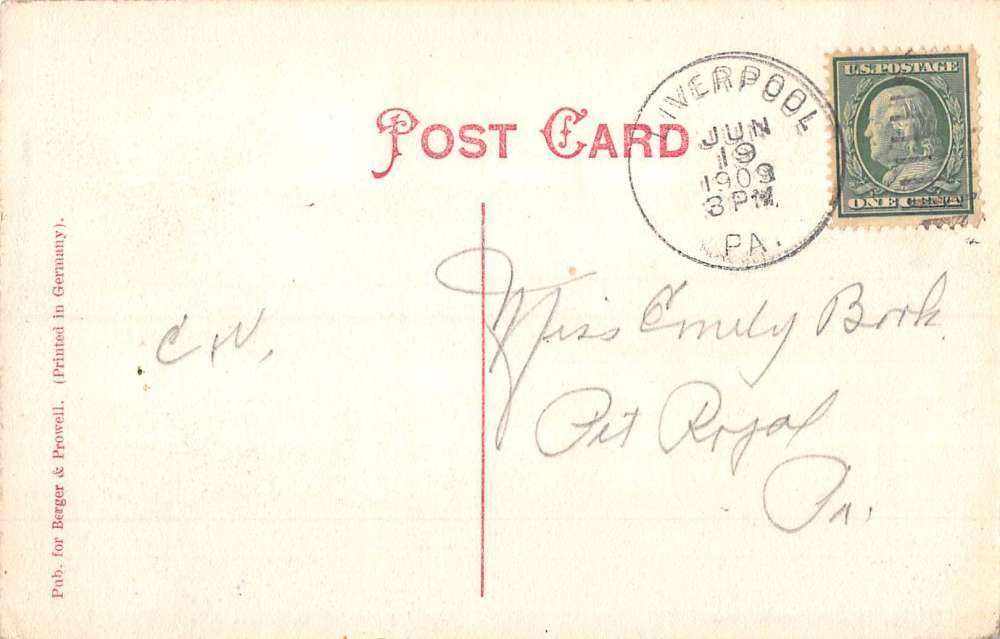 POST CARD
LIVERPOOL
JUN
19
1909
3 PM
PA.
U.S. POSTAGE
ONE CENT
C. N.
Miss Emily Book
Pt Royal
Pa.
Pub. for Berger & Prowell. (Printed in Germany).